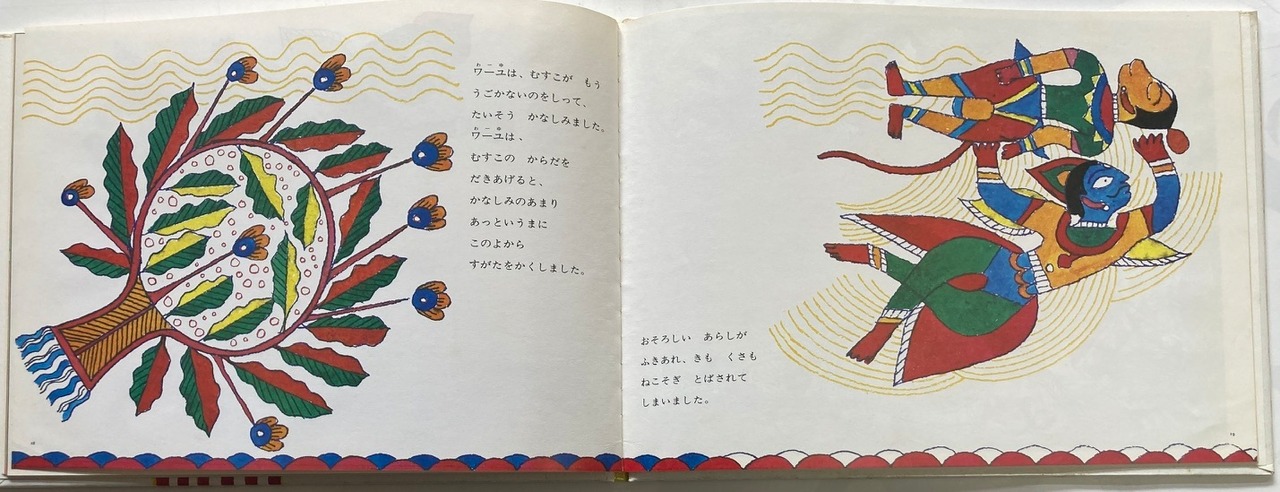 ワーユは、むすこが もう
うごかないのをしって、
たいそう かなしみました。
ワーユは、
むすこの からだを
だきあげると、
かなしみのあまり
あっというまに
このよから
すがたをかくしました。
おそろしい あらしが
ふきあれ、きも くさも
ねこそぎ とばされて
しまいました。